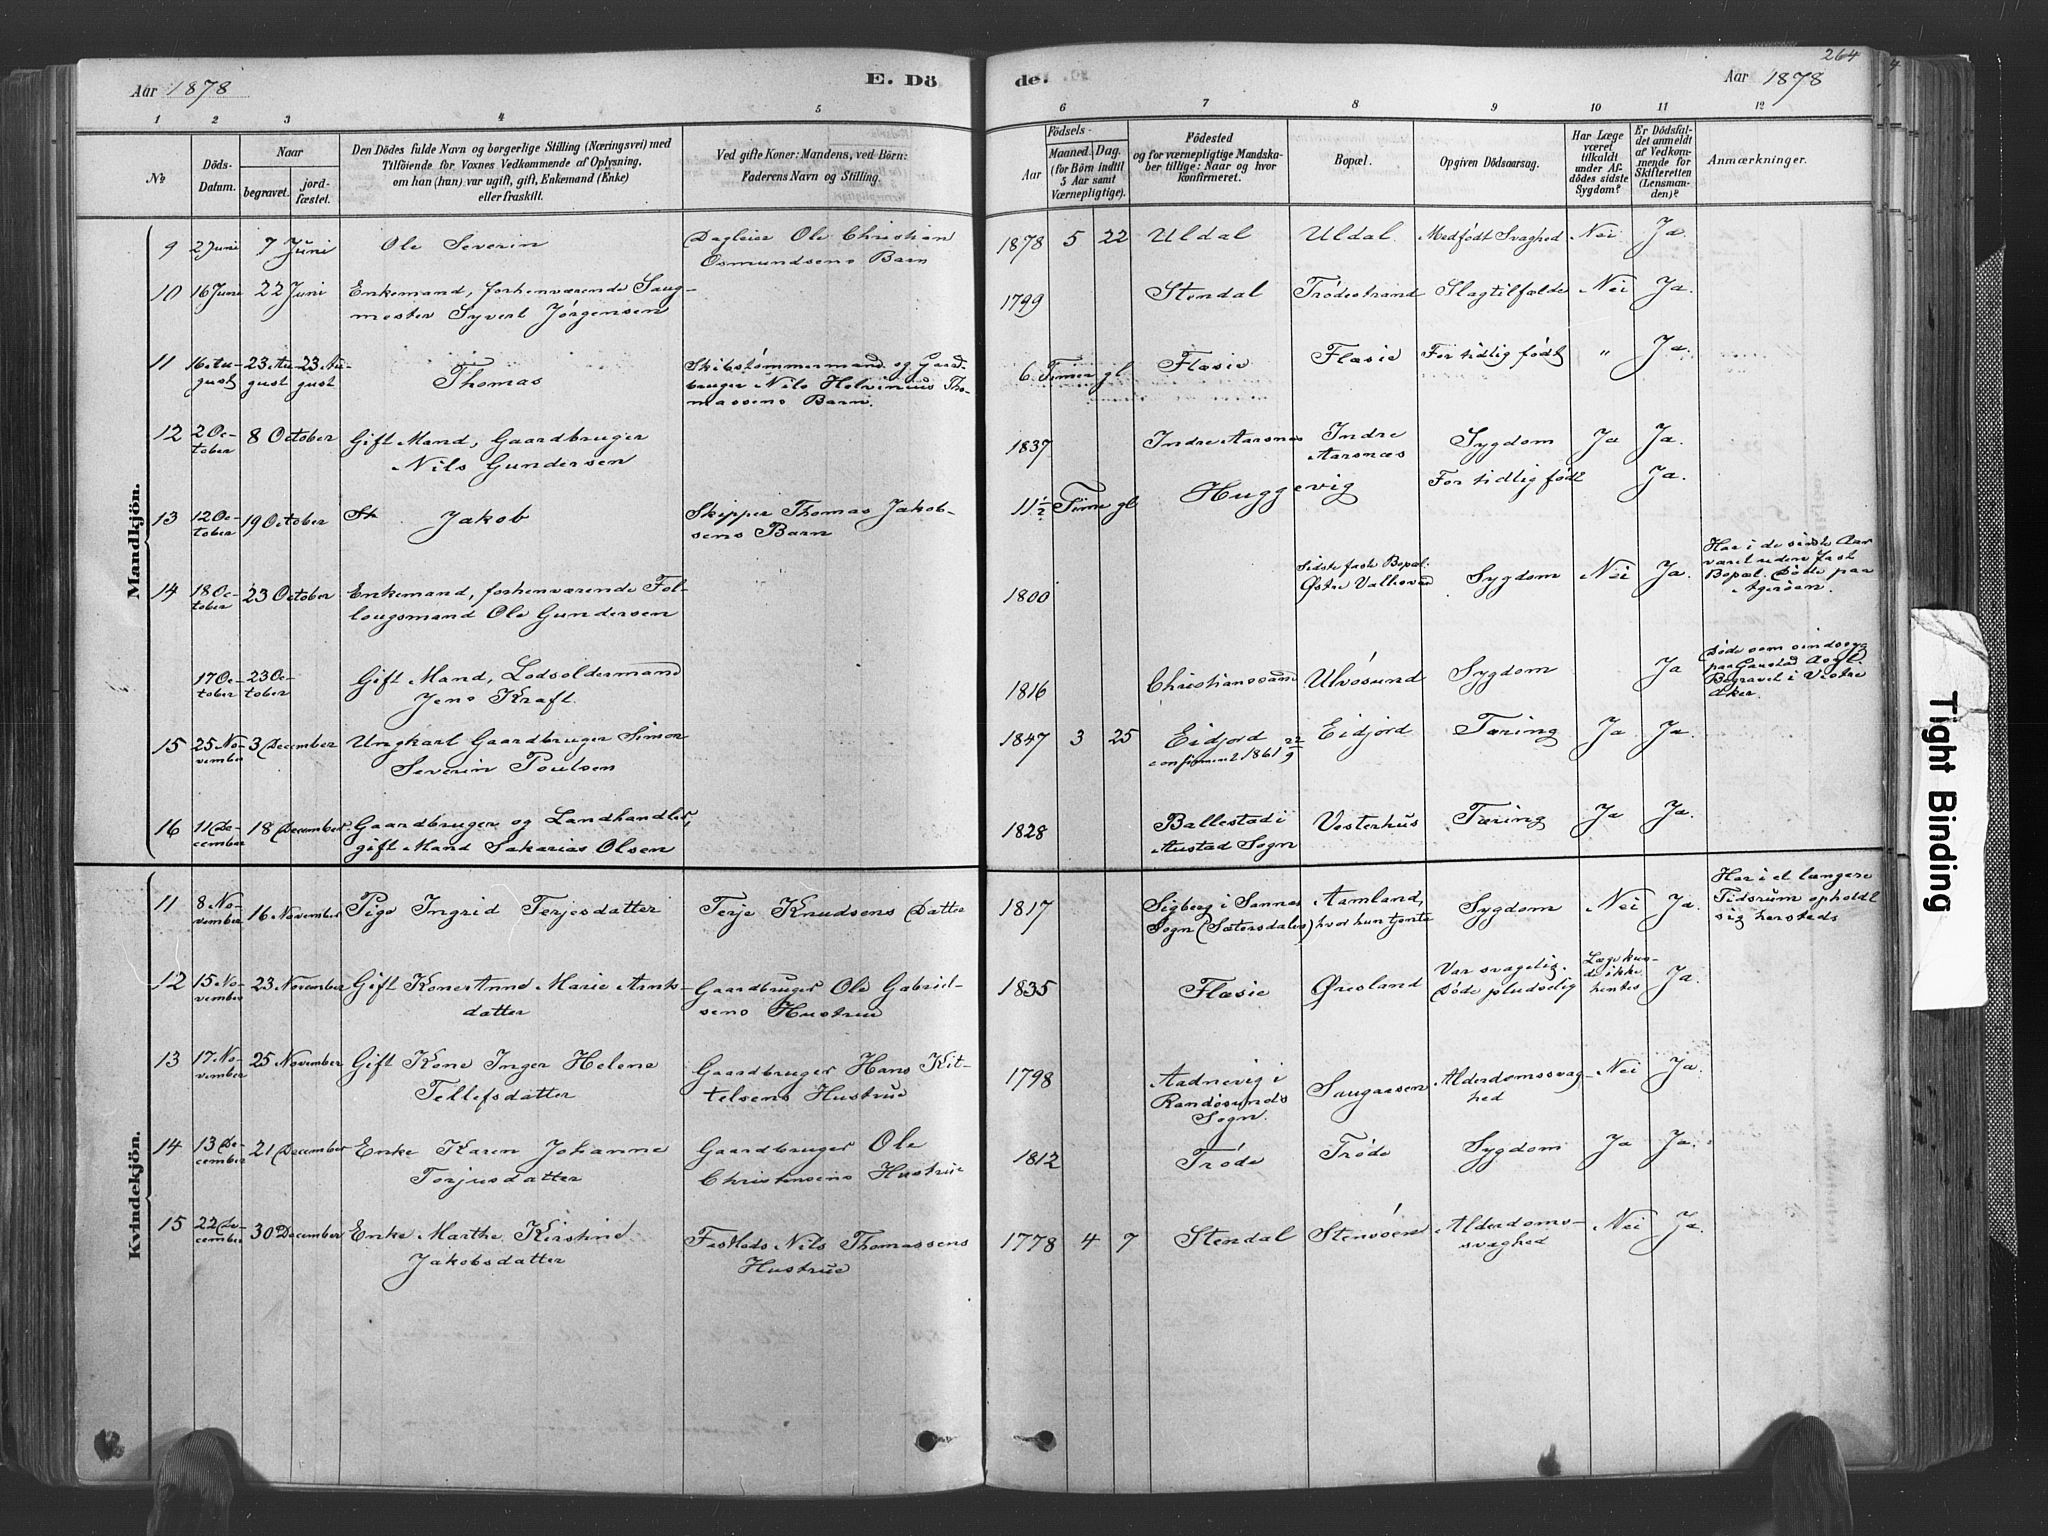 264
4
Aar 1878
E. Dö
de.
Aar 1878
1 2 3 4 5 6 7 8 9 10 11 12
No
Döds-
Datum.
Naar
begravet.
jord-
fæstet.
Den Dödes fulde Navn og borgerlige Stilling (Næringsvei) med
Tilföiende for Voxnes Vedkommende af Oplysning,
om han (hun) var ugift, gift, Enkemand (Enke)
eller fraskilt.
Ved gifte Koner: Mandens, ved Börn:
Faderens Navn og Stilling.
Födsels-
Aar
Maaned.
Dag.
(for Börn indtil
5 Aar samt
Værnepligtige).
Födested
og for værnepligtige Mandska-
ber tillige: Naar og hvor
konfirmeret.
Bopæl.
Opgiven Dödsaarsag.
Har Læge
været
tilkaldt
under Af-
dödes sidste
Sygdom?
Er Dödsfal-
det anmeldt
af Vedkom-
mende for
Skifteretten
(Lensman-
den)?
Anmærkninger.
Mandkjön.
9 2 Juni 7 Juni Ole Severin
Dagleier Ole Christian
Osmundsens Barn
1878 5 22 Uldal Uldal. Medfödt Svaghed Nei Ja
10 16 Juni 22 Juni Enkemand, forhenværende Saug-
mester Syvert Jørgensen
1799 Stendal Trødestrand Slagtilfælde Nei Ja.
11 16 Au-
gust
23 Au-
gust
23 Au-
gust
Thomas
Skibstömmermand og Gaard-
bruger Nils Helvinius Tho-
massens Barn.
6 Timer gl Flasie Flasie For tidlig födt " Ja.
12 2 Oc-
tober
8 October Gift Mand, Gaardbruger
Nils Gundersen
1837 Indre Aarsnes Indre
Aarsnæs
Sygdom Ja Ja.
13 12 Oc-
tober
19 October Jakob
Skipper Thomas Jakob-
sens Barn
11 1/2 Time gl Huggevig For tidlig födt Ja.
14 18 Oc-
tober
23 October Enkemand, forhenværende Fol-
lougsmand Ole Gundersen
1800
Sidste faste Bopæl.
Østre Vallesverd
Sygdom Nei Ja.
Har i de sidste Aar
været uden fast
Bopæl. Döde paa
Agerøen.
17 Oc-
tober
23 Oc-
tober
Gift Mand, Lodsoldermand
Jens Kraft.
1816 Christianssand Ulvösund Sygdom Ja
Döde som sindssyg
paa Gaustad Asyl.
Begravet i Vestre
Aker.
15 25 No-
vember
3 December Ungkarl Gaardbruger Simon
Severin Poulsen
1847 3 25 Eidjord
confirmeret 1861 22/9
Eidjord Tæring Ja Ja.
16 11 De-
cember
18 December Gaardbruger og Landhandler,
gift Mand Sakarias Olsen
1828 Ballestad i
Austad Sogn
Vesterhus Tæring Ja Ja.
Kvindekjön.
11 8 No-
vember
16 November Pige Ingrid Terjesdatter
Terje Knudsens Datter
1817 Sigberg i Sannes
Sogn (Sætersdalen)
Aamland,
hvor hun tjente
Sygdom Nei Ja.
Har i et længere
Tidsrum opholdt
sig hersteds
12 15 No-
vember
23 November Gift Kone Anne Marie Arnts-
datter
Gaardbruger Ole Gabriel-
sens Hustrue
1835 Flasie Øresland
Var svagelig.
Döde pludselig
Læge kun-
de ikke
hentes
Ja.
13 17 No-
vember
25 November Gift Kone Inger Helene
Tellefsdatter
Gaardbruger Hans Kit-
telsens Hustrue
1798 Aadnevig i
Randösunds
Sogn.
Saugaasen Alderdomssvag-
hed
Nei Ja.
14 13 De-
cember
21 December Enke Karen Johanne
Torjusdatter
Gaardbruger Ole
Christensens Hustrue
1812 Trøde Trøde Sygdom Ja Ja.
15 22 De-
cember
30 December Enke Marthe Kirstine
Jakobsdatter
Fastlods Nils Thomassens
Hustrue
1778 4 7 Stendal Stensöen Alderdoms-
svaghed
Nei Ja
Tight Binding